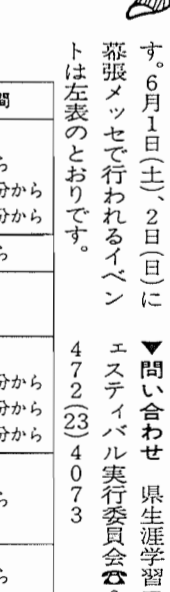 す。6月1日(土)、2日(日)に
幕張メッセで行われるイベン
トは左表のとおりです。
▼問い合わせ　県生涯学習
ェスティバル実行委員会☎
472(23)4073
間
ら
分から
分から
ら
分から
分から
分から
ら
ら